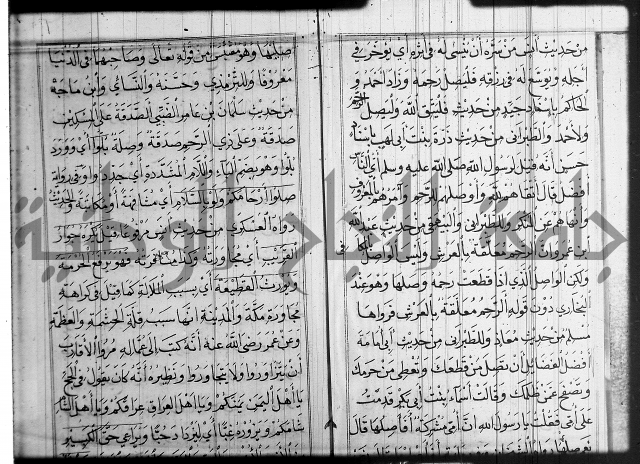 من حديث أنس من سره أن ينسى له في أثره أي يؤخر في
أجله ويوسع له في رزقه فليصل رحمه وزاد احمد و
الحاكم باسناد جيد من حديث فليتق الله وليصل الرحم
ولاحمد والطبراني من حديث درة بنت أبي لهب باسناد
حسن أنه قيل لرسول الله صلى الله عليه وسلم أي الناس
أفضل قال أتقاهم لله وأوصلهم للرحم وآمرهم بالمعروف
وأنهاهم عن المنكر وللطبراني والبيهقي من حديث عبد الله
ابن عمرو ان الرحم معلقة بالعرش وليس الواصل بالمكافي
ولكن الواصل الذي اذا قطعت رحمه وصلها وهو عند
البخاري دون قوله الرحم معلقة بالعرش فرواها
مسلم من حديث معاذ وللطبراني من حديث أبي أمامة
أفضل الفضائل أن تصل من قطعك وتعطي من حرمك
وتصفح عمن ظلمك وقالت أسماء بنت أبي بكر قدمت
على أمي فقلت يا رسول الله ان أمي مشركة أفأصلها قال
نعم صليها
صليها وهو مقتبس من قوله تعالى وصاحبهما في الدنيا
معروفا وللترمذي وحسنه والنسائي وابن ماجة
من حديث سلمان بن عامر الضبي الصدقة على المسكين
صدقة وعلى ذي الرحم صدقة وصلة بلوا أي وورد
بلوا وهو بضم الباء واللام المشددة أي جددوا وفي رواية
صلوا أرحامكم ولو بالسلام أي مشافهة أو مكاتبة والحديث
رواه العسكري من حديث أنس مرفوعا قيل كره جوار
القريب أي مجاورته وكذا فانه يرفع الحرمة
ويورث القطيعة أي بسبب الملالة كما قيل في كراهة
مجاورة مكة والمدينة انها سبب قلة الحشمة والعظمة
وعن عمر رضي الله عنه أنه كتب الى عماله مروا الأقارب
أن يتزاوروا ولا يتجاوروا ونظيره أنه كان يقول في الحج
يا أهل اليمن يمنكم ويا أهل العراق عراقكم ويا أهل الشام
شامكم ويزوره غبا أي ليزداد حبا ويراعي حق الكبير
جامعة النجاح الوطنية